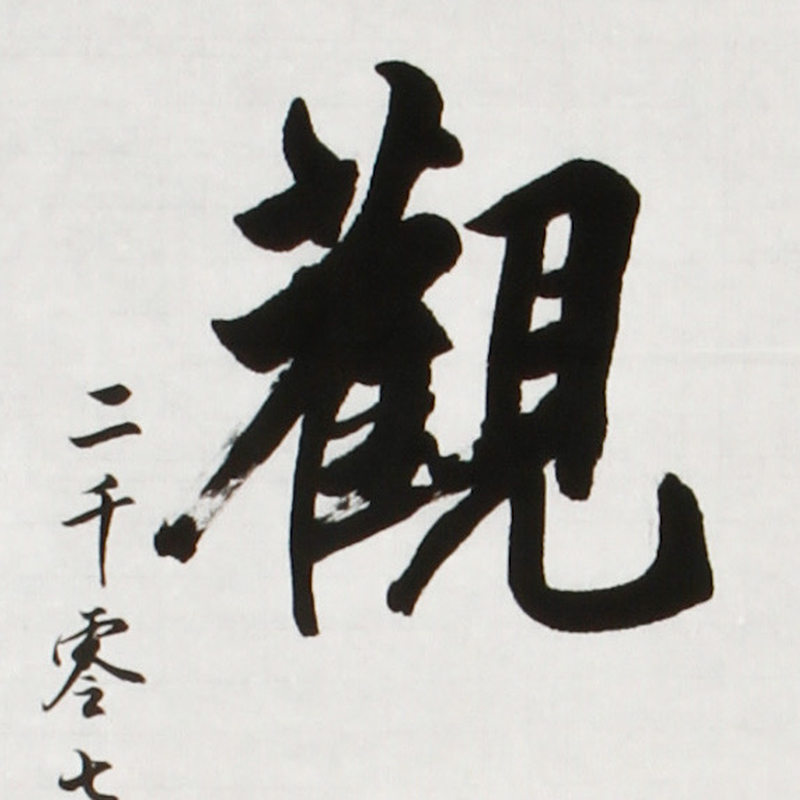 觀
二千零七